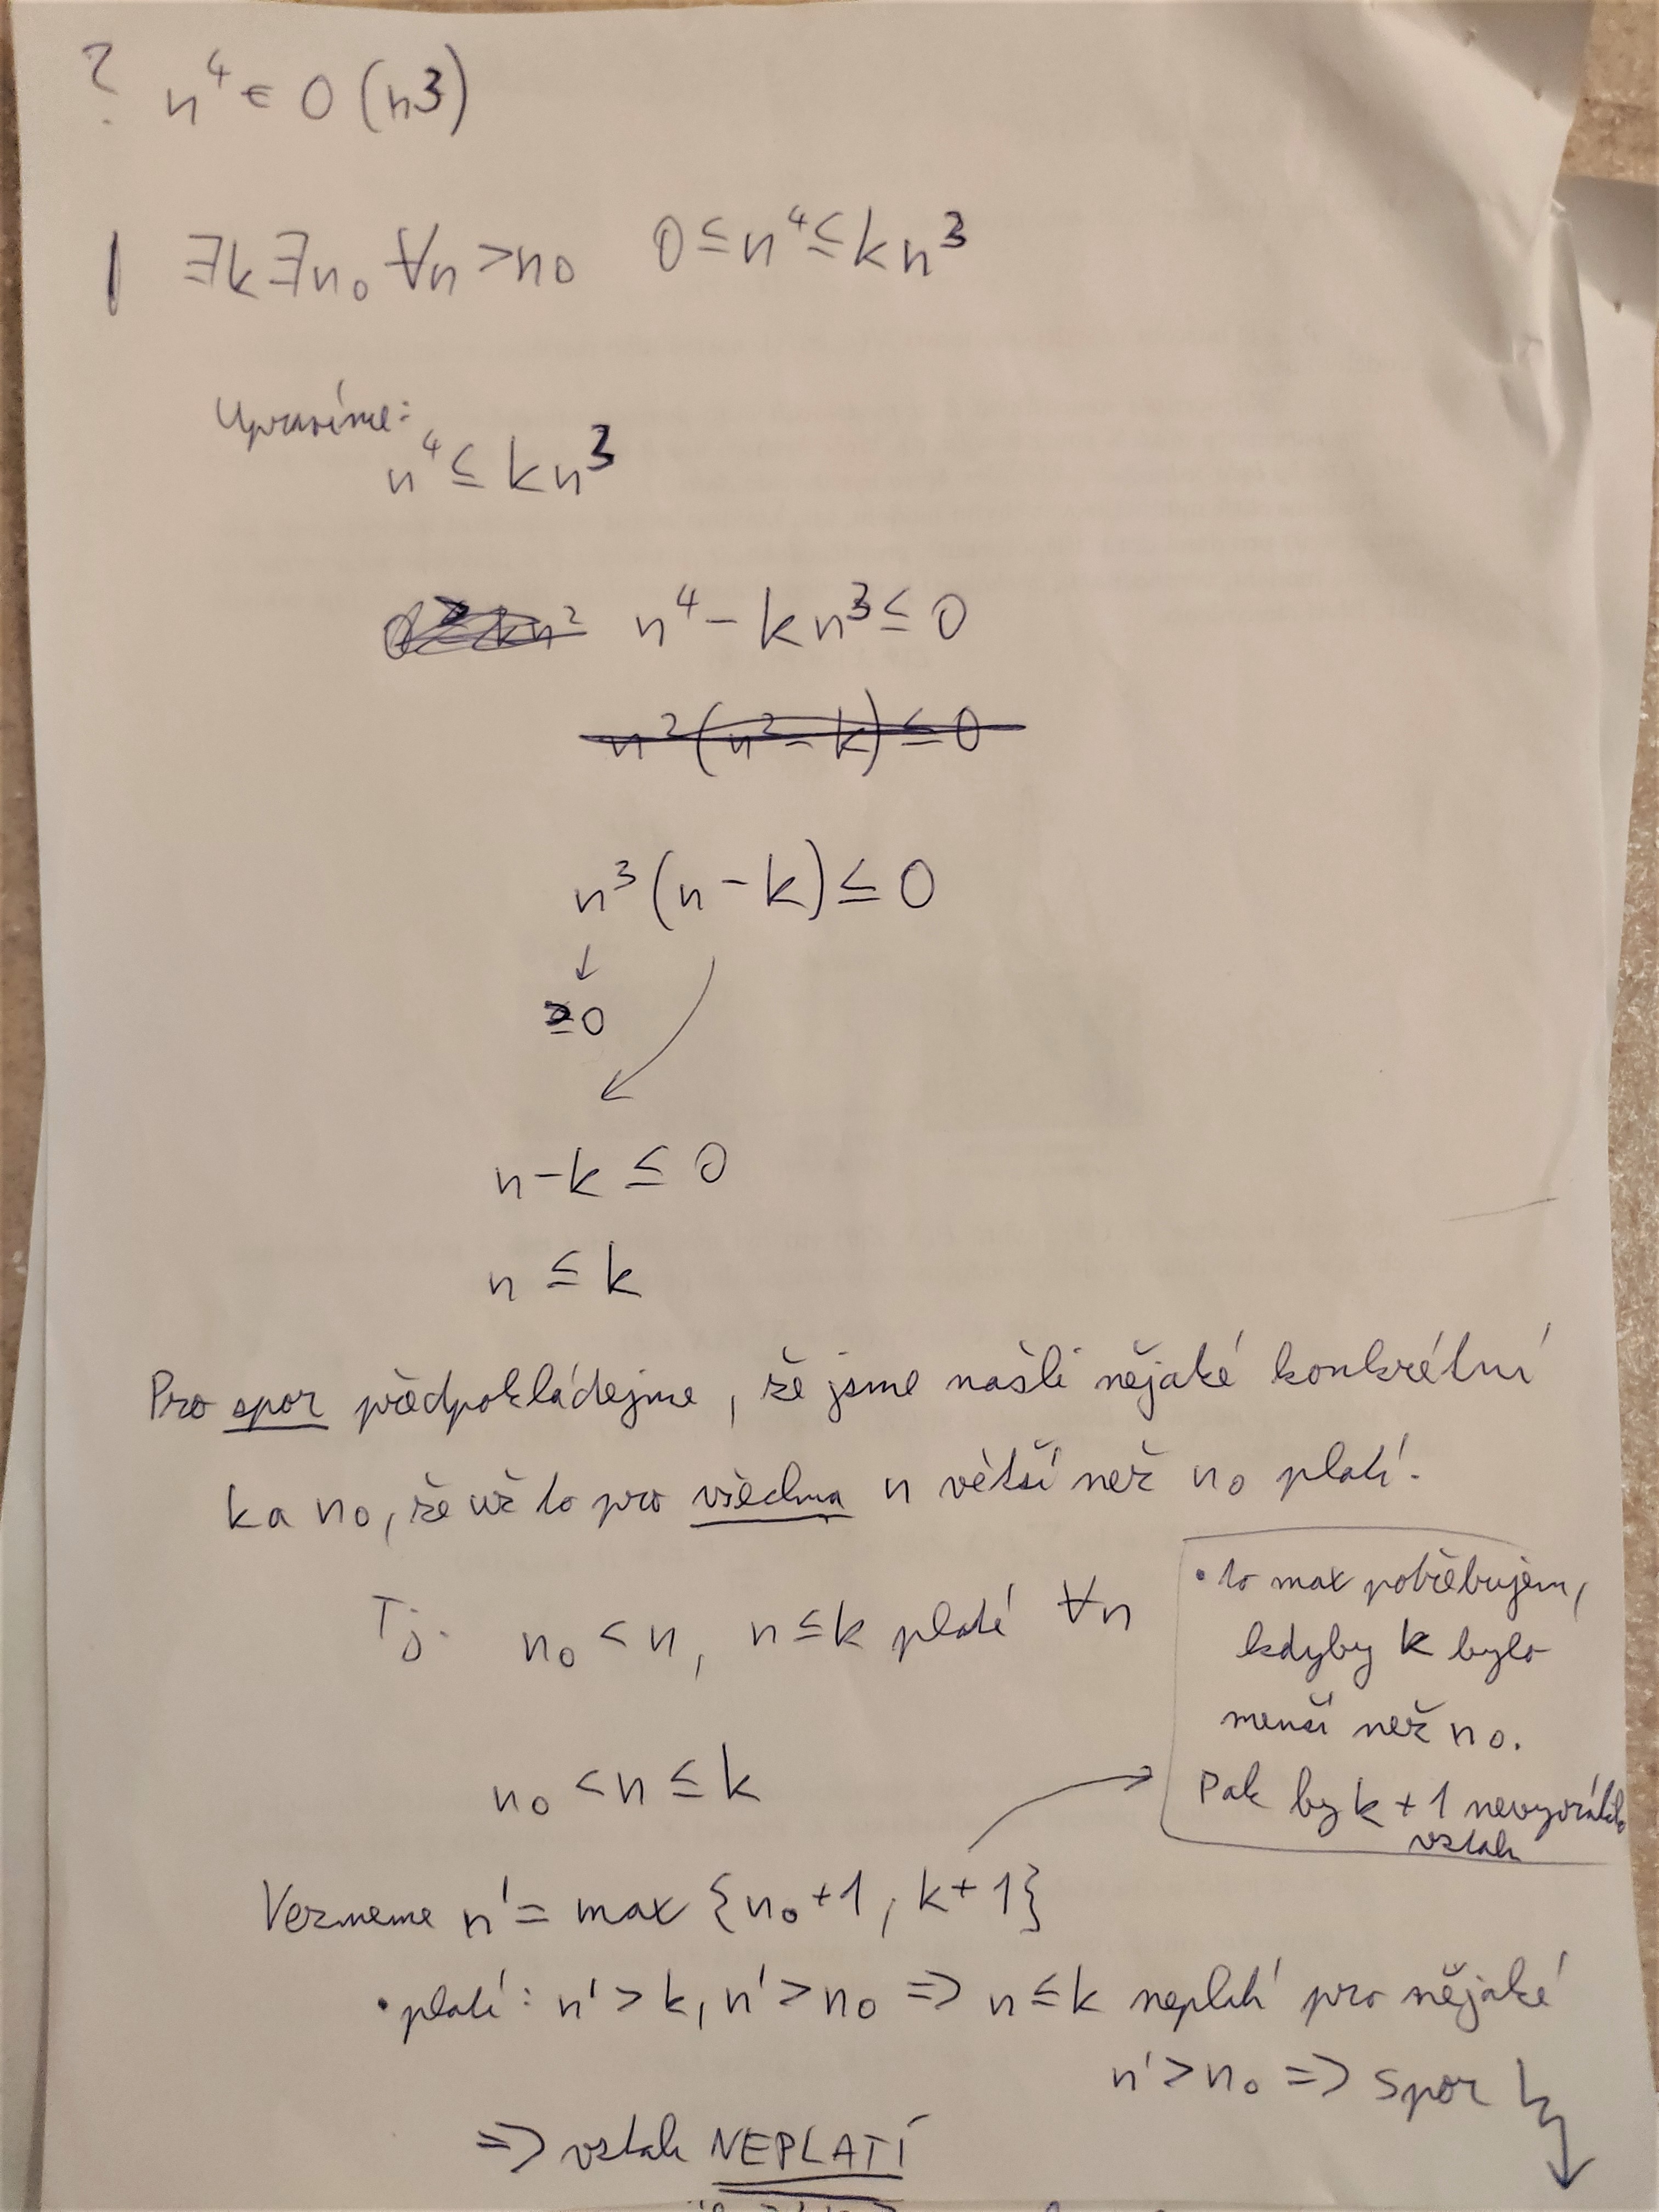 ? n⁴ ∈ O(n3)
| ∃k ∃n₀ ∀n > n₀ 0 ≤ n⁴ ≤ kn³
Upravíme:
n⁴ ≤ kn³
n⁴ - kn³ ≤ 0
n²(n² - k) ≤ 0
n³(n - k) ≤ 0
↓
≥0
n - k ≤ 0
n ≤ k
Pro spor předpokládejme, že jsme našli nějaké konkrétní
k a n₀, že už to pro všechna n větší než n₀ platí.
Tj. n₀ < n, n ≤ k platí ∀n
n₀ < n ≤ k
• to max potřebujem,
kdyby k bylo
menší než n₀.
Pak by k + 1 nevyvrátilo
vztah
Vezmeme n' = max {n₀ + 1, k + 1}
• platí: n' > k, n' > n₀ => n ≤ k neplatí pro nějaké
n' > n₀ => spor
=> vztah NEPLATÍ